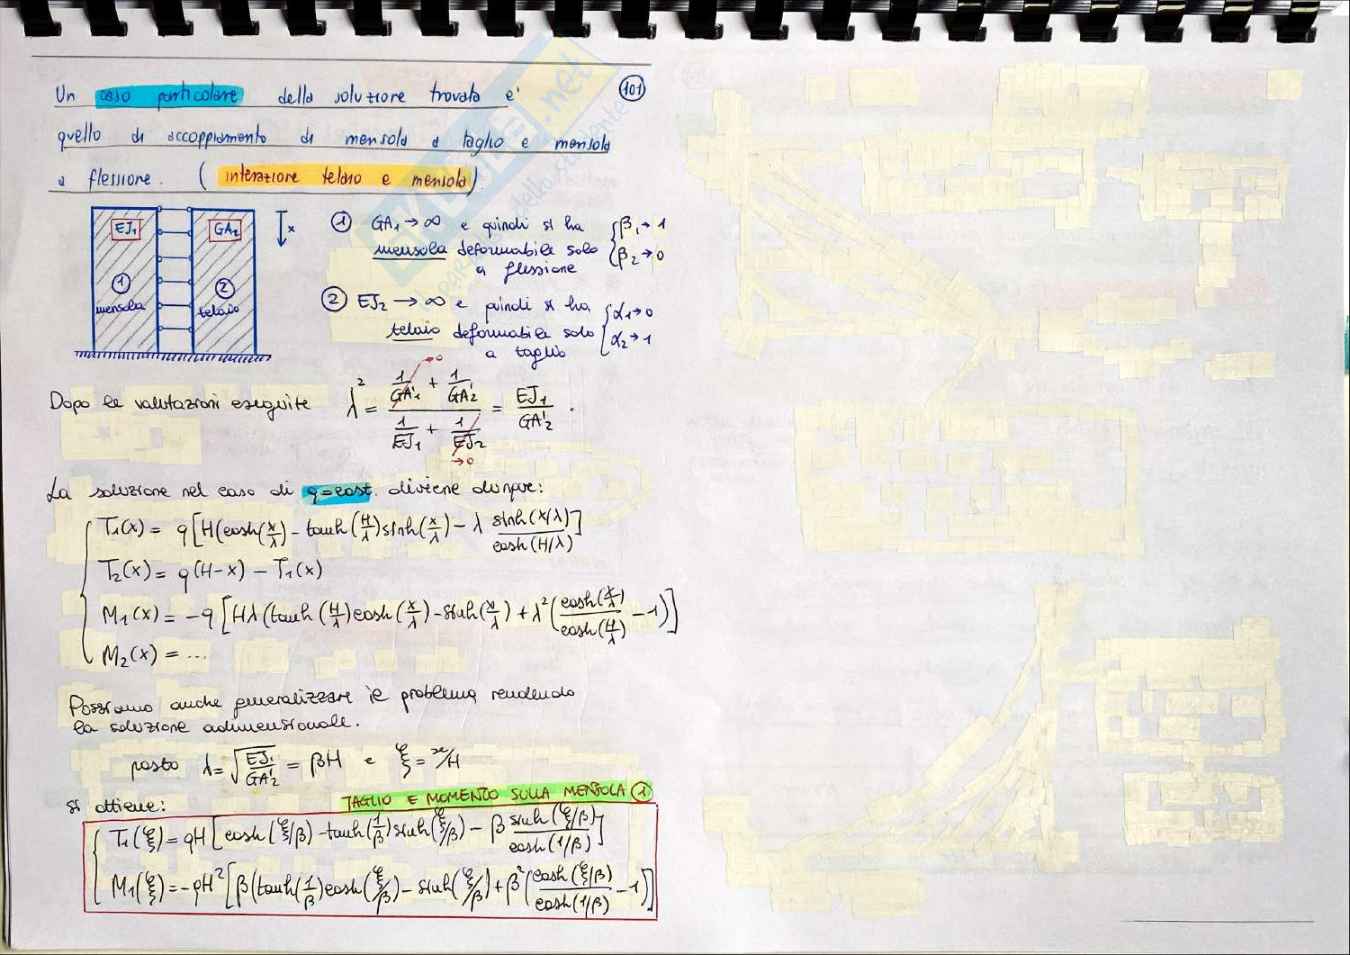 101
Un caso particolare della soluzione trovata e'
quello di accoppiamento di mensola a taglio e mensola
a flessione. (interazione telaio e mensola)
EJ1 GA2 x
1 mensola
2 telaio
① GA1 → ∞ e quindi si ha { β1 → 1
mensola deformabile solo { β2 → 0
a flessione
② EJ2 → ∞ e quindi si ha { α1 → 0
telaio deformabile solo { α2 → 1
a taglio
Dopo le valutazioni eseguite λ² = (1/GA'1 + 1/GA'2) / (1/EJ1 + 1/EJ2) = EJ1/GA'2 .
→0
→0
La soluzione nel caso di q=cost. diviene dunque:
T1(x) = q[H(cosh(x/λ) - tanh(H/λ)sinh(x/λ) - λ sinh(x/λ)/cosh(H/λ)]
T2(x) = q(H-x) - T1(x)
M1(x) = -q[Hλ(tanh(H/λ)cosh(x/λ) - sinh(x/λ) + λ²(cosh(x/λ)/cosh(H/λ) - 1)]
M2(x) = ...
Possiamo anche generalizzare il problema rendendo
la soluzione adimensionale.
posto λ = √(EJ1/GA'2) = βH e ξ = x/H
si ottiene:
TAGLIO E MOMENTO SULLA MENSOLA ①
T1(ξ) = qH[cosh(ξ/β) - tanh(1/β)sinh(ξ/β) - β sinh(ξ/β)/cosh(1/β)]
M1(ξ) = -qH²[β(tanh(1/β)cosh(ξ/β) - sinh(ξ/β) + β²(cosh(ξ/β)/cosh(1/β) - 1)]